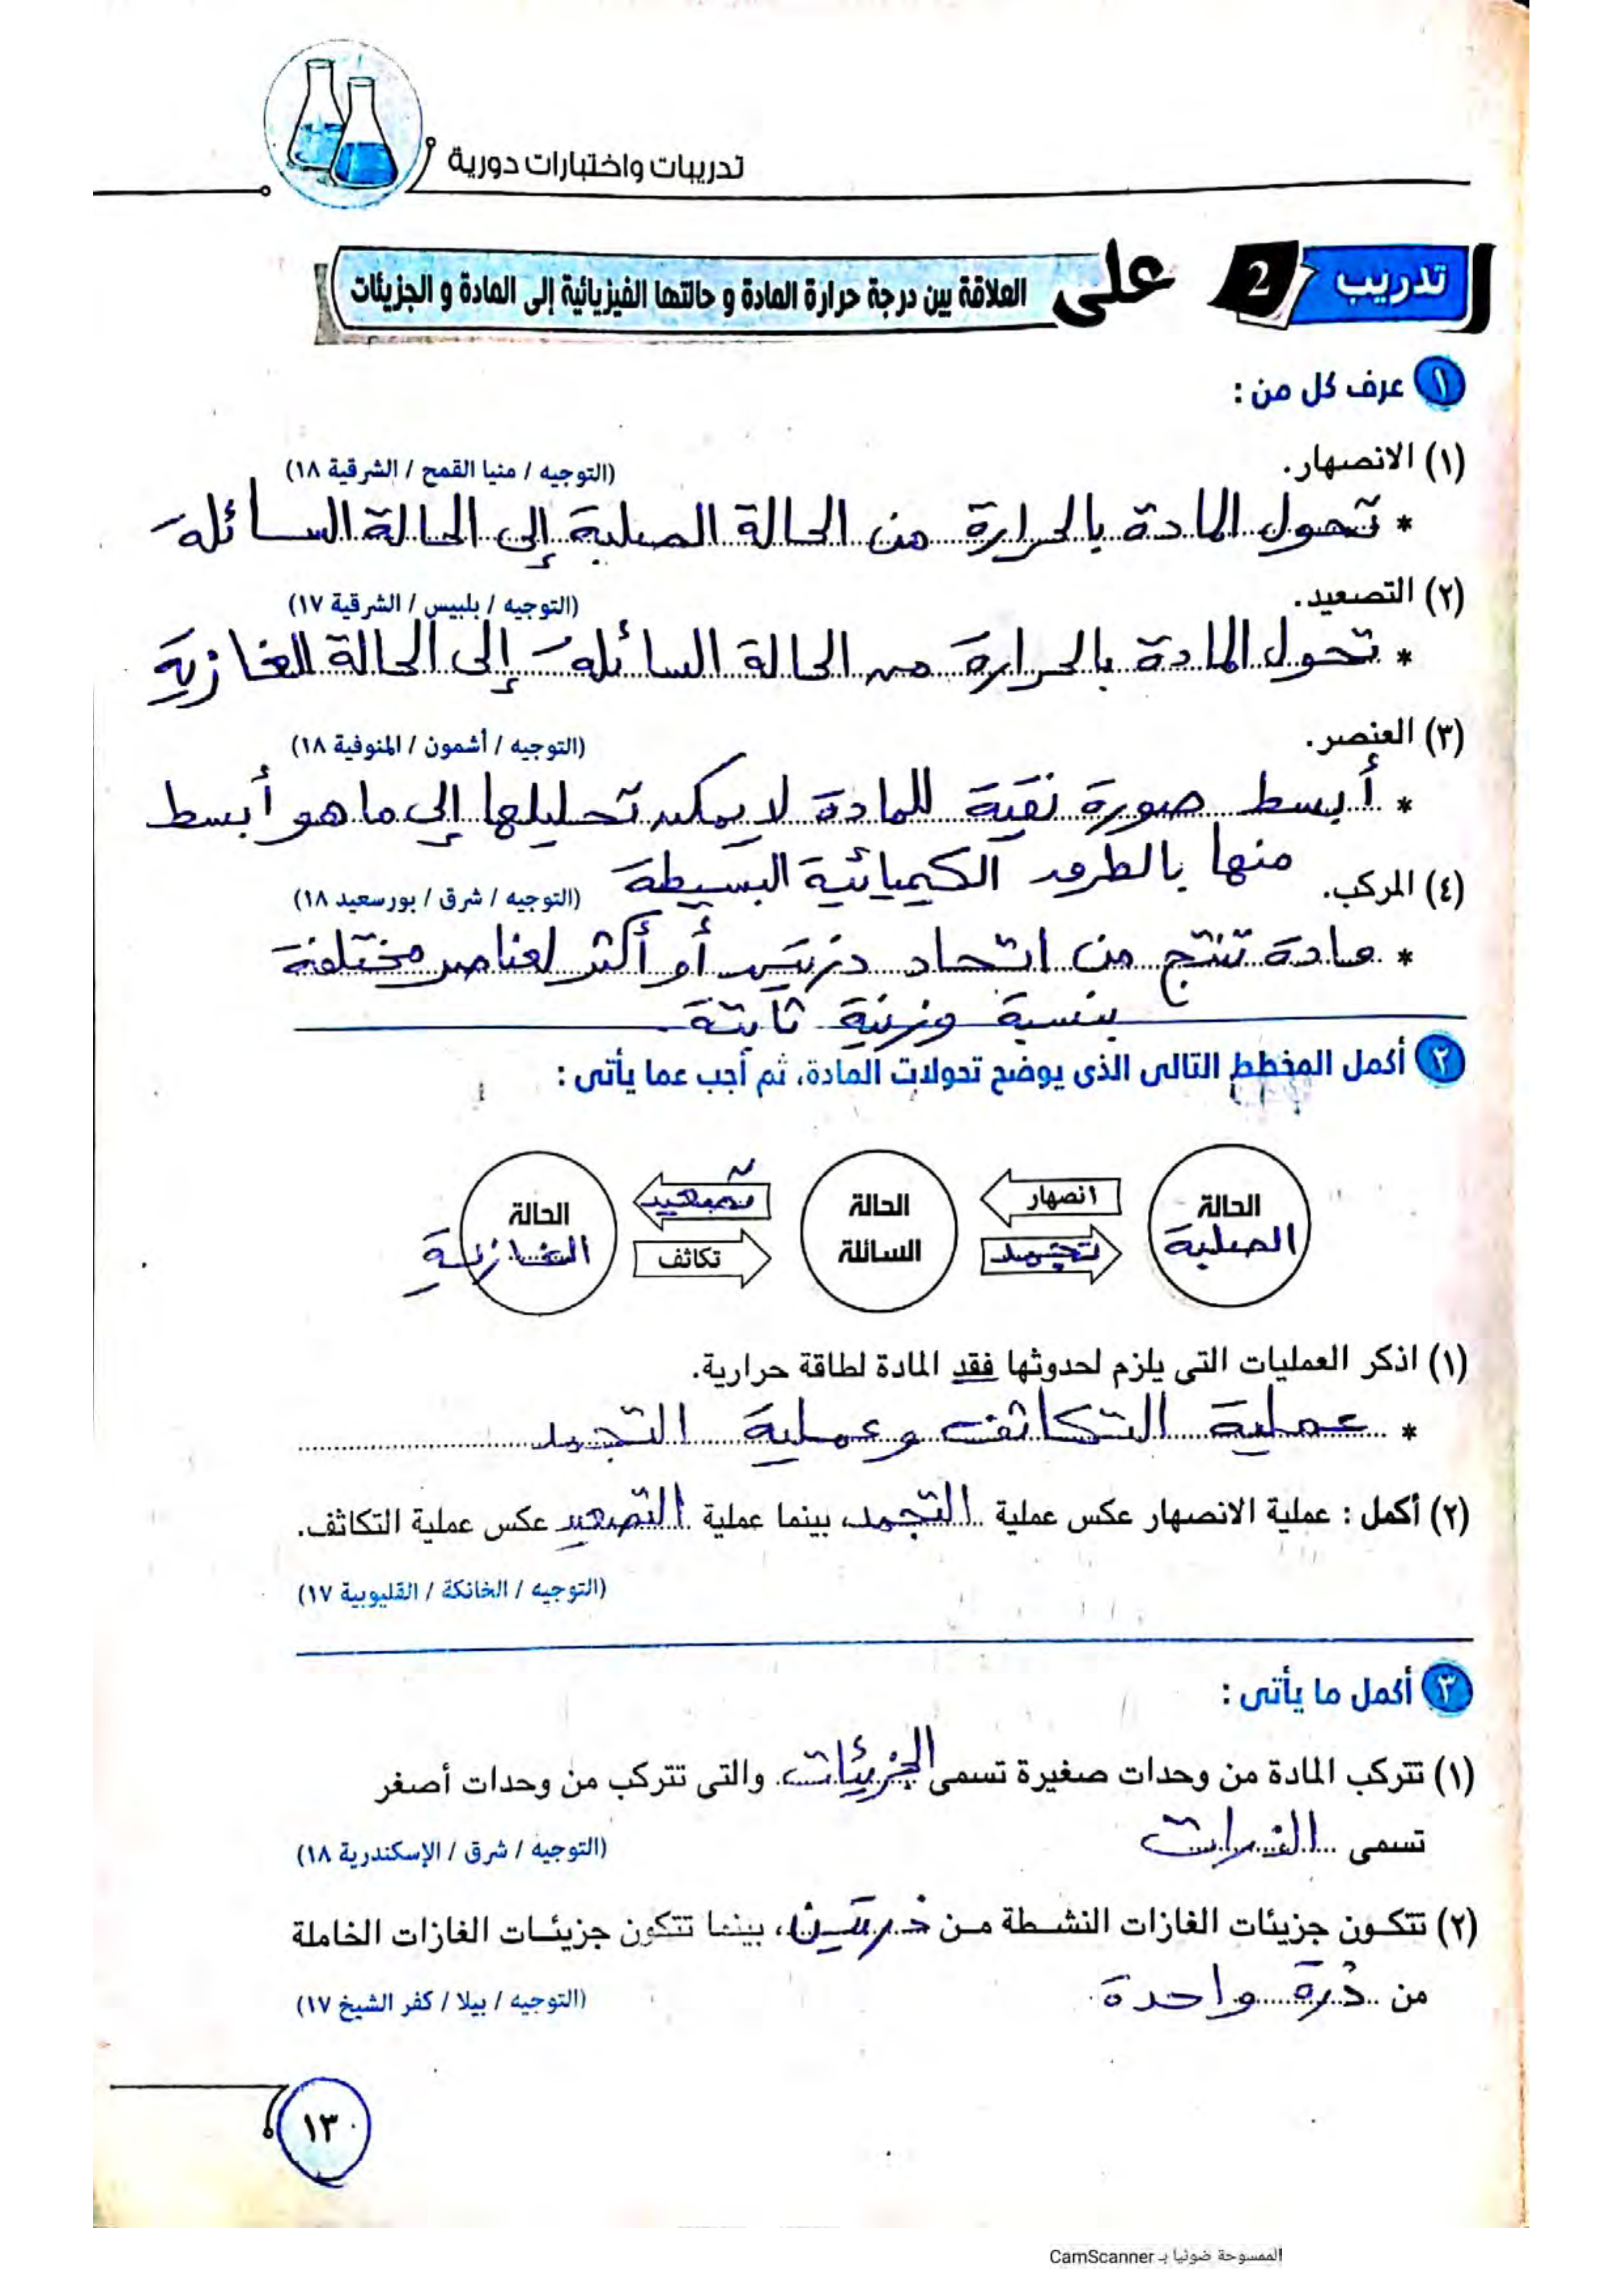 تدريبات واختبارات دورية
تدريب 2 على العلاقة بين درجة حرارة المادة و حالتها الفيزيائية إلى المادة و الجزيئات
١ عرف كل من :
(١) الانصهار.
(التوجيه / منيا القمح / الشرقية ١٨)
* تحول المادة بالحرارة من الحالة الصلبة إلى الحالة السائلة
(٢) التصعيد.
(التوجيه / بلبيس / الشرقية ١٧)
* تحول المادة بالحرارة من الحالة السائلة إلى الحالة الغازية
(٣) العنصر.
(التوجيه / أشمون / المنوفية ١٨)
* أبسط صورة نقية للمادة لا يمكن تحليلها إلى ما هو أبسط
منها بالطرق الكيميائية البسيطة
(٤) المركب.
(التوجيه / شرق / بورسعيد ١٨)
* مادة تنتج من اتحاد ذرتين أو أكثر لعناصر مختلفة
بنسبة وزنية ثابتة
٢ أكمل المخطط التالى الذى يوضح تحولات المادة، ثم أجب عما يأتى :
الحالة الصلبة
انصهار
تجمد
الحالة السائلة
تصعيد
تكاثف
الحالة الغازية
(١) اذكر العمليات التى يلزم لحدوثها فقد المادة لطاقة حرارية.
* عملية التكاثف وعملية التجمد
(٢) أكمل : عملية الانصهار عكس عملية التجمد، بينما عملية التصعيد عكس عملية التكاثف.
(التوجيه / الخانكة / القليوبية ١٧)
٣ أكمل ما يأتى :
(١) تتركب المادة من وحدات صغيرة تسمى الجزيئات والتى تتركب من وحدات أصغر
تسمى الذرات
(التوجيه / شرق / الإسكندرية ١٨)
(٢) تتكون جزيئات الغازات النشطة من ذرتين، بينما تتكون جزيئات الغازات الخاملة
من ذرة واحدة
(التوجيه / بيلا / كفر الشيخ ١٧)
١٣
الممسوحة ضوئيا بـ CamScanner